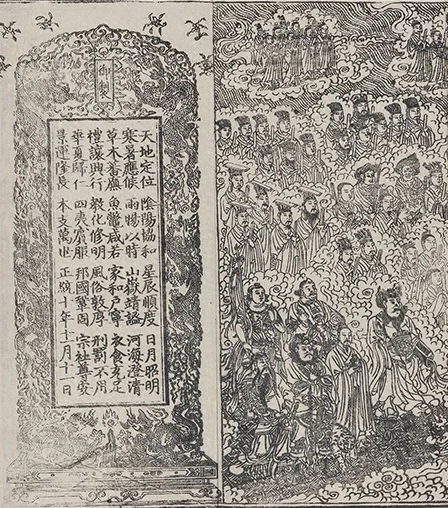 御製
天地定位 陰陽協和 星辰順度 日月昭明
寒暑應候 雨暘以時 山嶽靖謐 河海澄清
草木蕃廡 魚鱉咸若 家和戶寧 衣食充足
禮讓興行 敎化修明 風俗敦厚 刑罰不用
華夏歸仁 四夷賓服 邦國鞏固 宗社尊安
景運隆長 本支萬世 正統十年十一月十一日